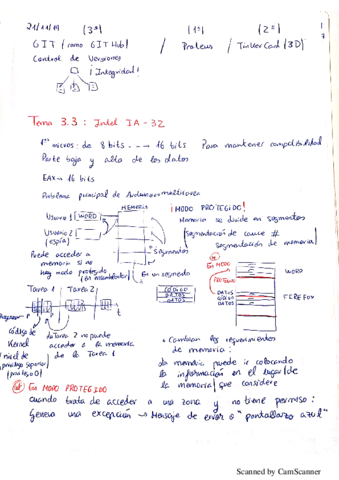 21/11/19 (3º) (1º) (2º) 1
GIT (como GIT Hub) / Proteus / TinkerCad (3D)
Control de Versiones
¡Integridad!
Tema 3.3: Intel IA-32
1ºs micros: de 8 bits. --→ 16 bits Para mantener compatibilidad
Parte baja y alta de los datos
EAX→ 16 bits
Problema principal de
MEMORIA
¡MODO PROTEGIDO!
Usuario 1 WORD
Memoria se divide en segmentos
Usuario 2
(espía)
(segmentación de cauce ≠
segmentación de memoria)
Segmentos
Puede acceder a
memoria si no
hay modo protegido
En un segmento
En MODO
PROTEGIDO
WORD
CÓDIGO
DATOS
DATOS
DATOS
CÓDIGO
DATOS
FIREFOX
Tarea 1 Tarea 2
t
Código de
Kernel
(nivel de
privilegio superior)
(privilegio 0)
La Tarea 2 no puede
acceder a la memoria
de la Tarea 1
• Cambian los requerimientos
de memoria:
La memoria puede ir colocando
la información en el lugar de
la memoria que considere
En MODO PROTEGIDO
cuando trata de acceder a una zona y no tiene permiso:
Genera una excepción → Mensaje de error o "pantallazo azul"
Scanned by CamScanner